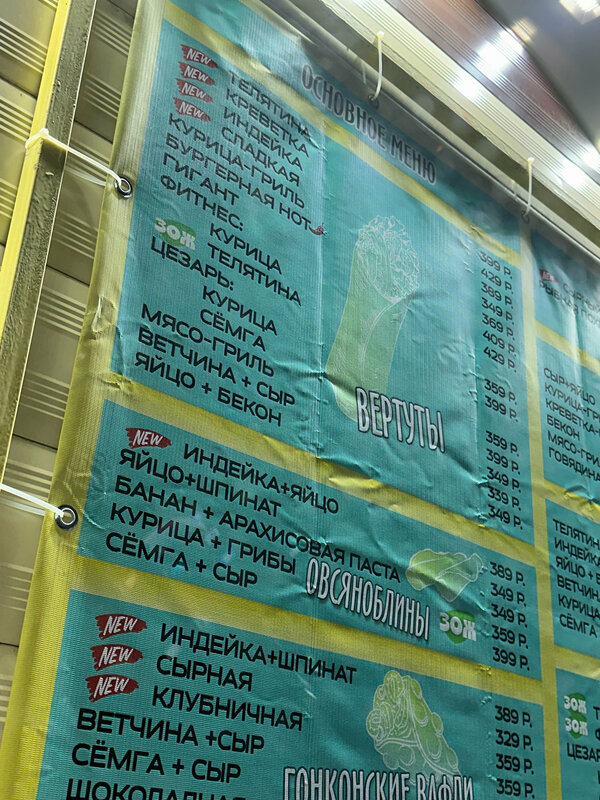 ОСНОВНОЕ МЕНЮ
NEW ТЕЛЯТИНА 399 Р.
NEW КРЕВЕТКА 429 Р.
NEW ИНДЕЙКА 389 Р.
NEW СЛАДКАЯ 349 Р.
КУРИЦА-ГРИЛЬ 369 Р.
БУРГЕРНАЯ HOT 409 Р.
ГИГАНТ 429 Р.
ФИТНЕС:
ЗОЖ КУРИЦА 359 Р.
ТЕЛЯТИНА 399 Р.
ЦЕЗАРЬ:
КУРИЦА 359 Р.
СЁМГА 399 Р.
МЯСО-ГРИЛЬ 349 Р.
ВЕТЧИНА + СЫР 339 Р.
ЯЙЦО + БЕКОН 349 Р.
ВЕРТУТЫ
NEW ИНДЕЙКА+ЯЙЦО 389 Р.
ЯЙЦО+ШПИНАТ 349 Р.
БАНАН + АРАХИСОВАЯ ПАСТА 349 Р.
КУРИЦА + ГРИБЫ 359 Р.
СЁМГА + СЫР 399 Р.
ОВСЯНОБЛИНЫ
ЗОЖ
NEW ИНДЕЙКА+ШПИНАТ 389 Р.
NEW СЫРНАЯ 329 Р.
NEW КЛУБНИЧНАЯ 359 Р.
ВЕТЧИНА +СЫР 359 Р.
СЁМГА + СЫР
ШОКОЛАДНАЯ
ГОНКОНСКИЕ ВАФЛИ
NEW
СЫР+ЯЙЦО
БЕКОН
ЗОЖ
ЗОЖ